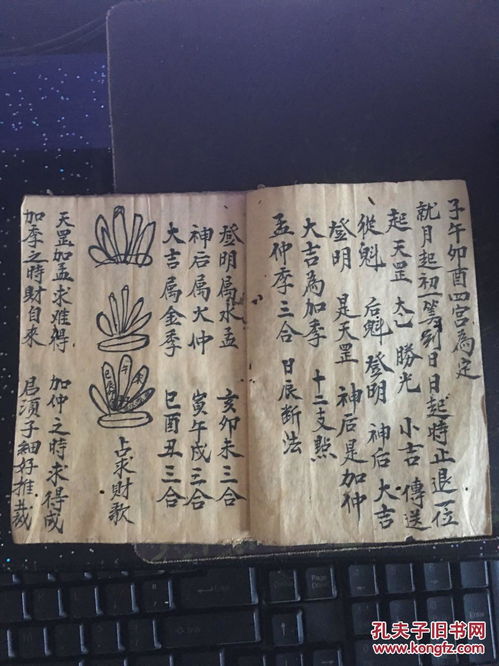 子午卯酉四宫為定
就月起初一筭到日日起時止退一位
起天罡 太乙 勝光 小吉 傳送
從魁 后魁 登明 神后 大吉
登明 是天罡 神后是加仲
大吉為加季 十二支點
孟仲季三合 日辰断法
登明屬水孟 亥卯未三合
神后屬大仲 寅午戌三合
大吉屬金季 巳酉丑三合
占求財歌
天罡加孟求难得 加仲之時求得成
加季之時財自来 君須子細好推裁
孔夫子旧书网
www.kongfz.com